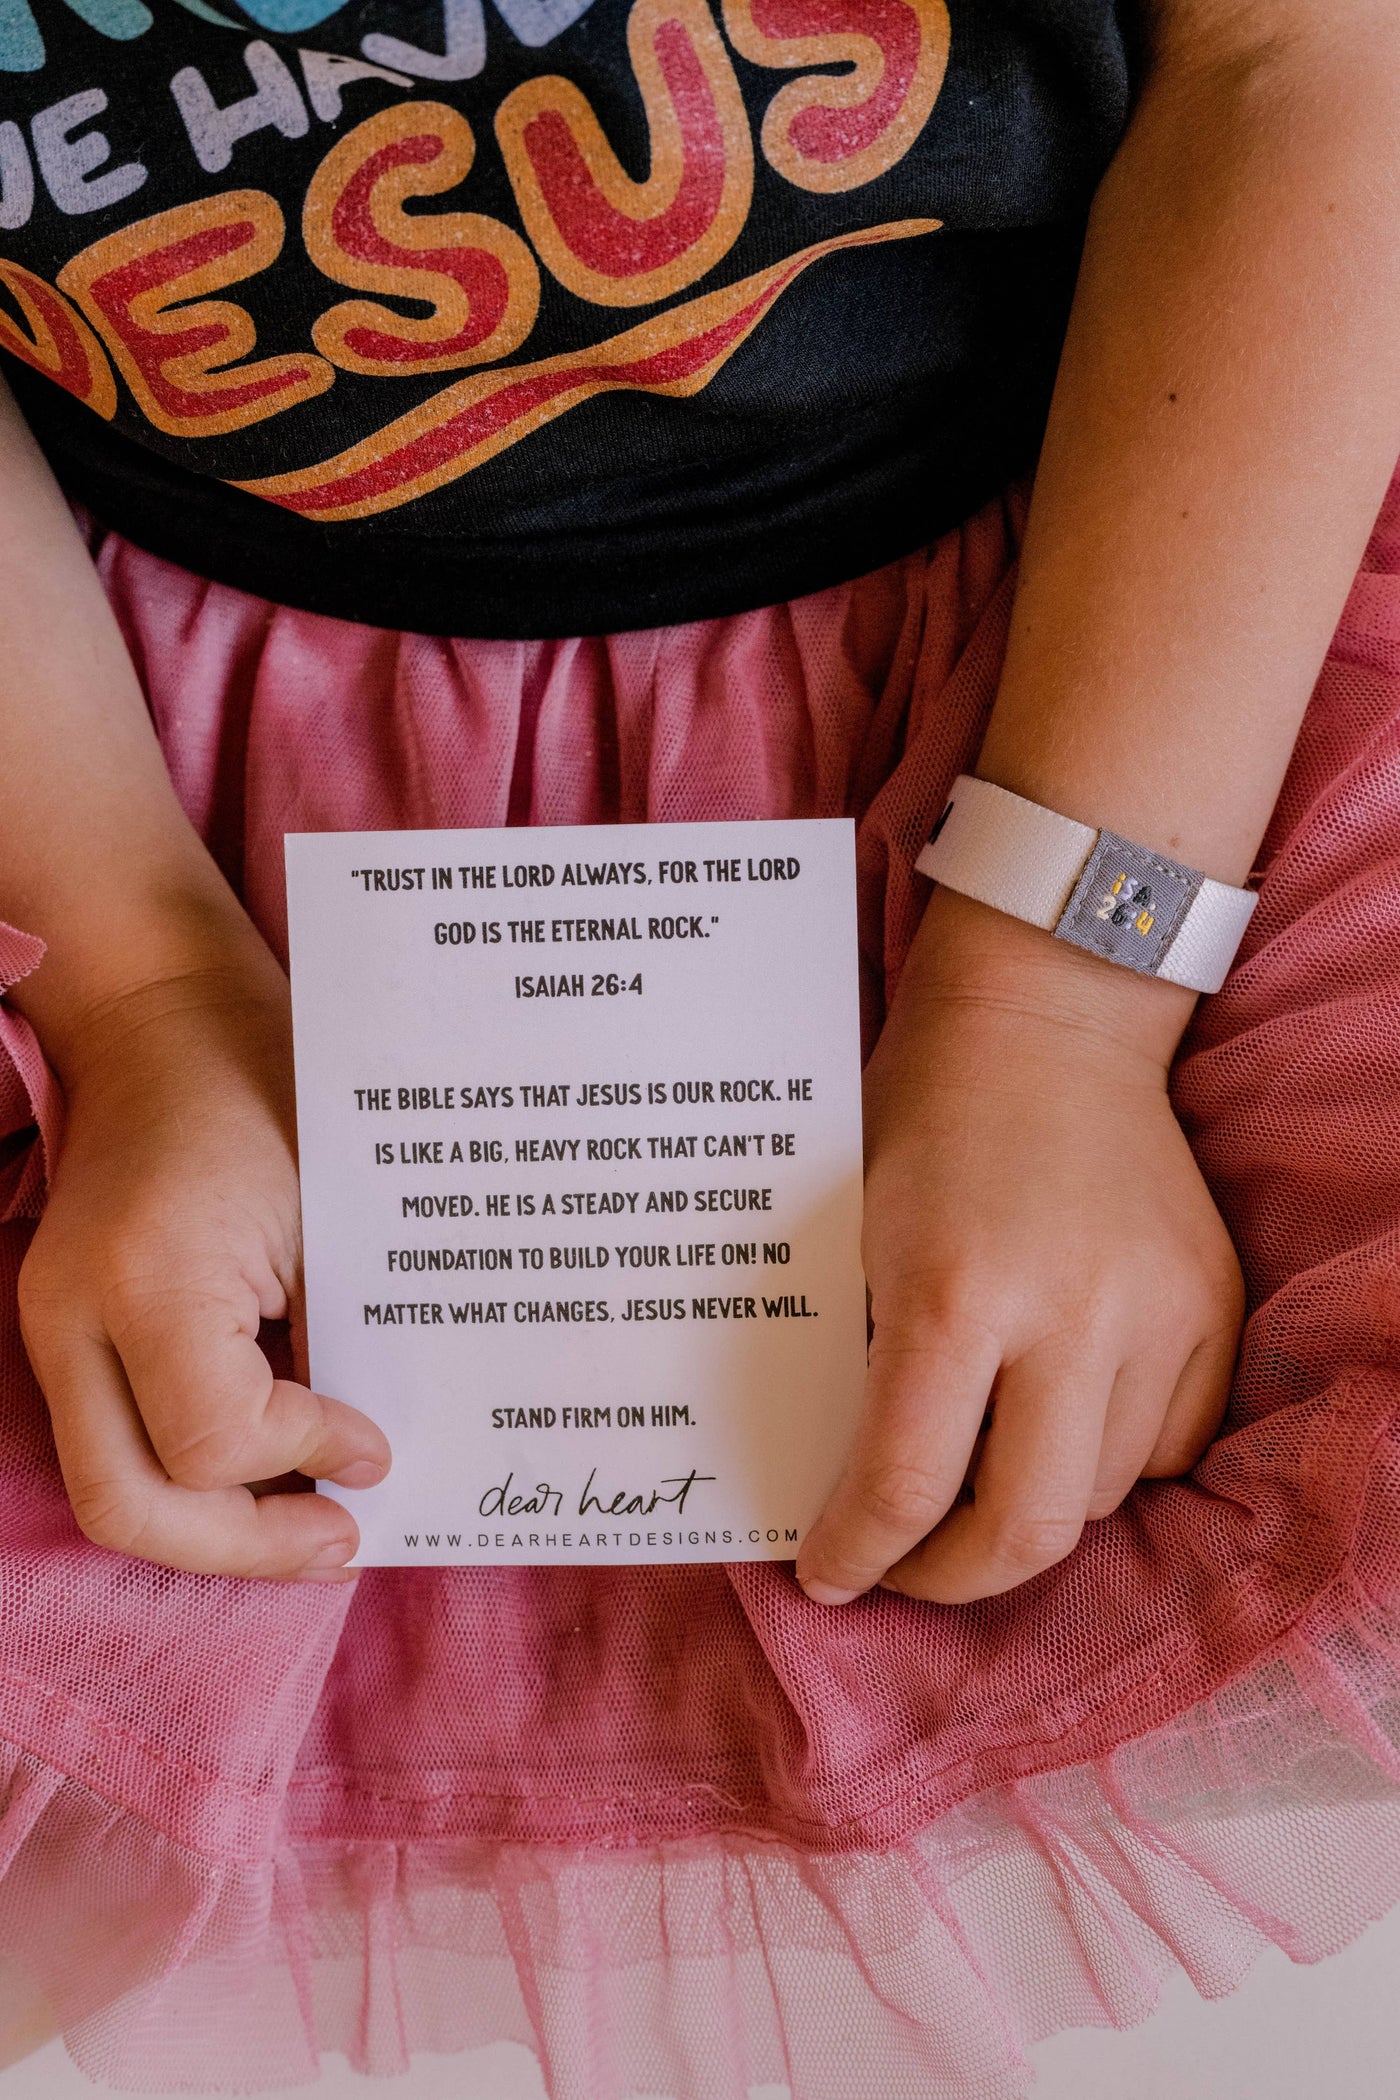 WE HAVE
JESUS
"TRUST IN THE LORD ALWAYS, FOR THE LORD
GOD IS THE ETERNAL ROCK."
ISAIAH 26:4
THE BIBLE SAYS THAT JESUS IS OUR ROCK. HE
IS LIKE A BIG, HEAVY ROCK THAT CAN'T BE
MOVED. HE IS A STEADY AND SECURE
FOUNDATION TO BUILD YOUR LIFE ON! NO
MATTER WHAT CHANGES, JESUS NEVER WILL.
STAND FIRM ON HIM.
dear heart
WWW.DEARHEARTDESIGNS.COM
isA.
26:4